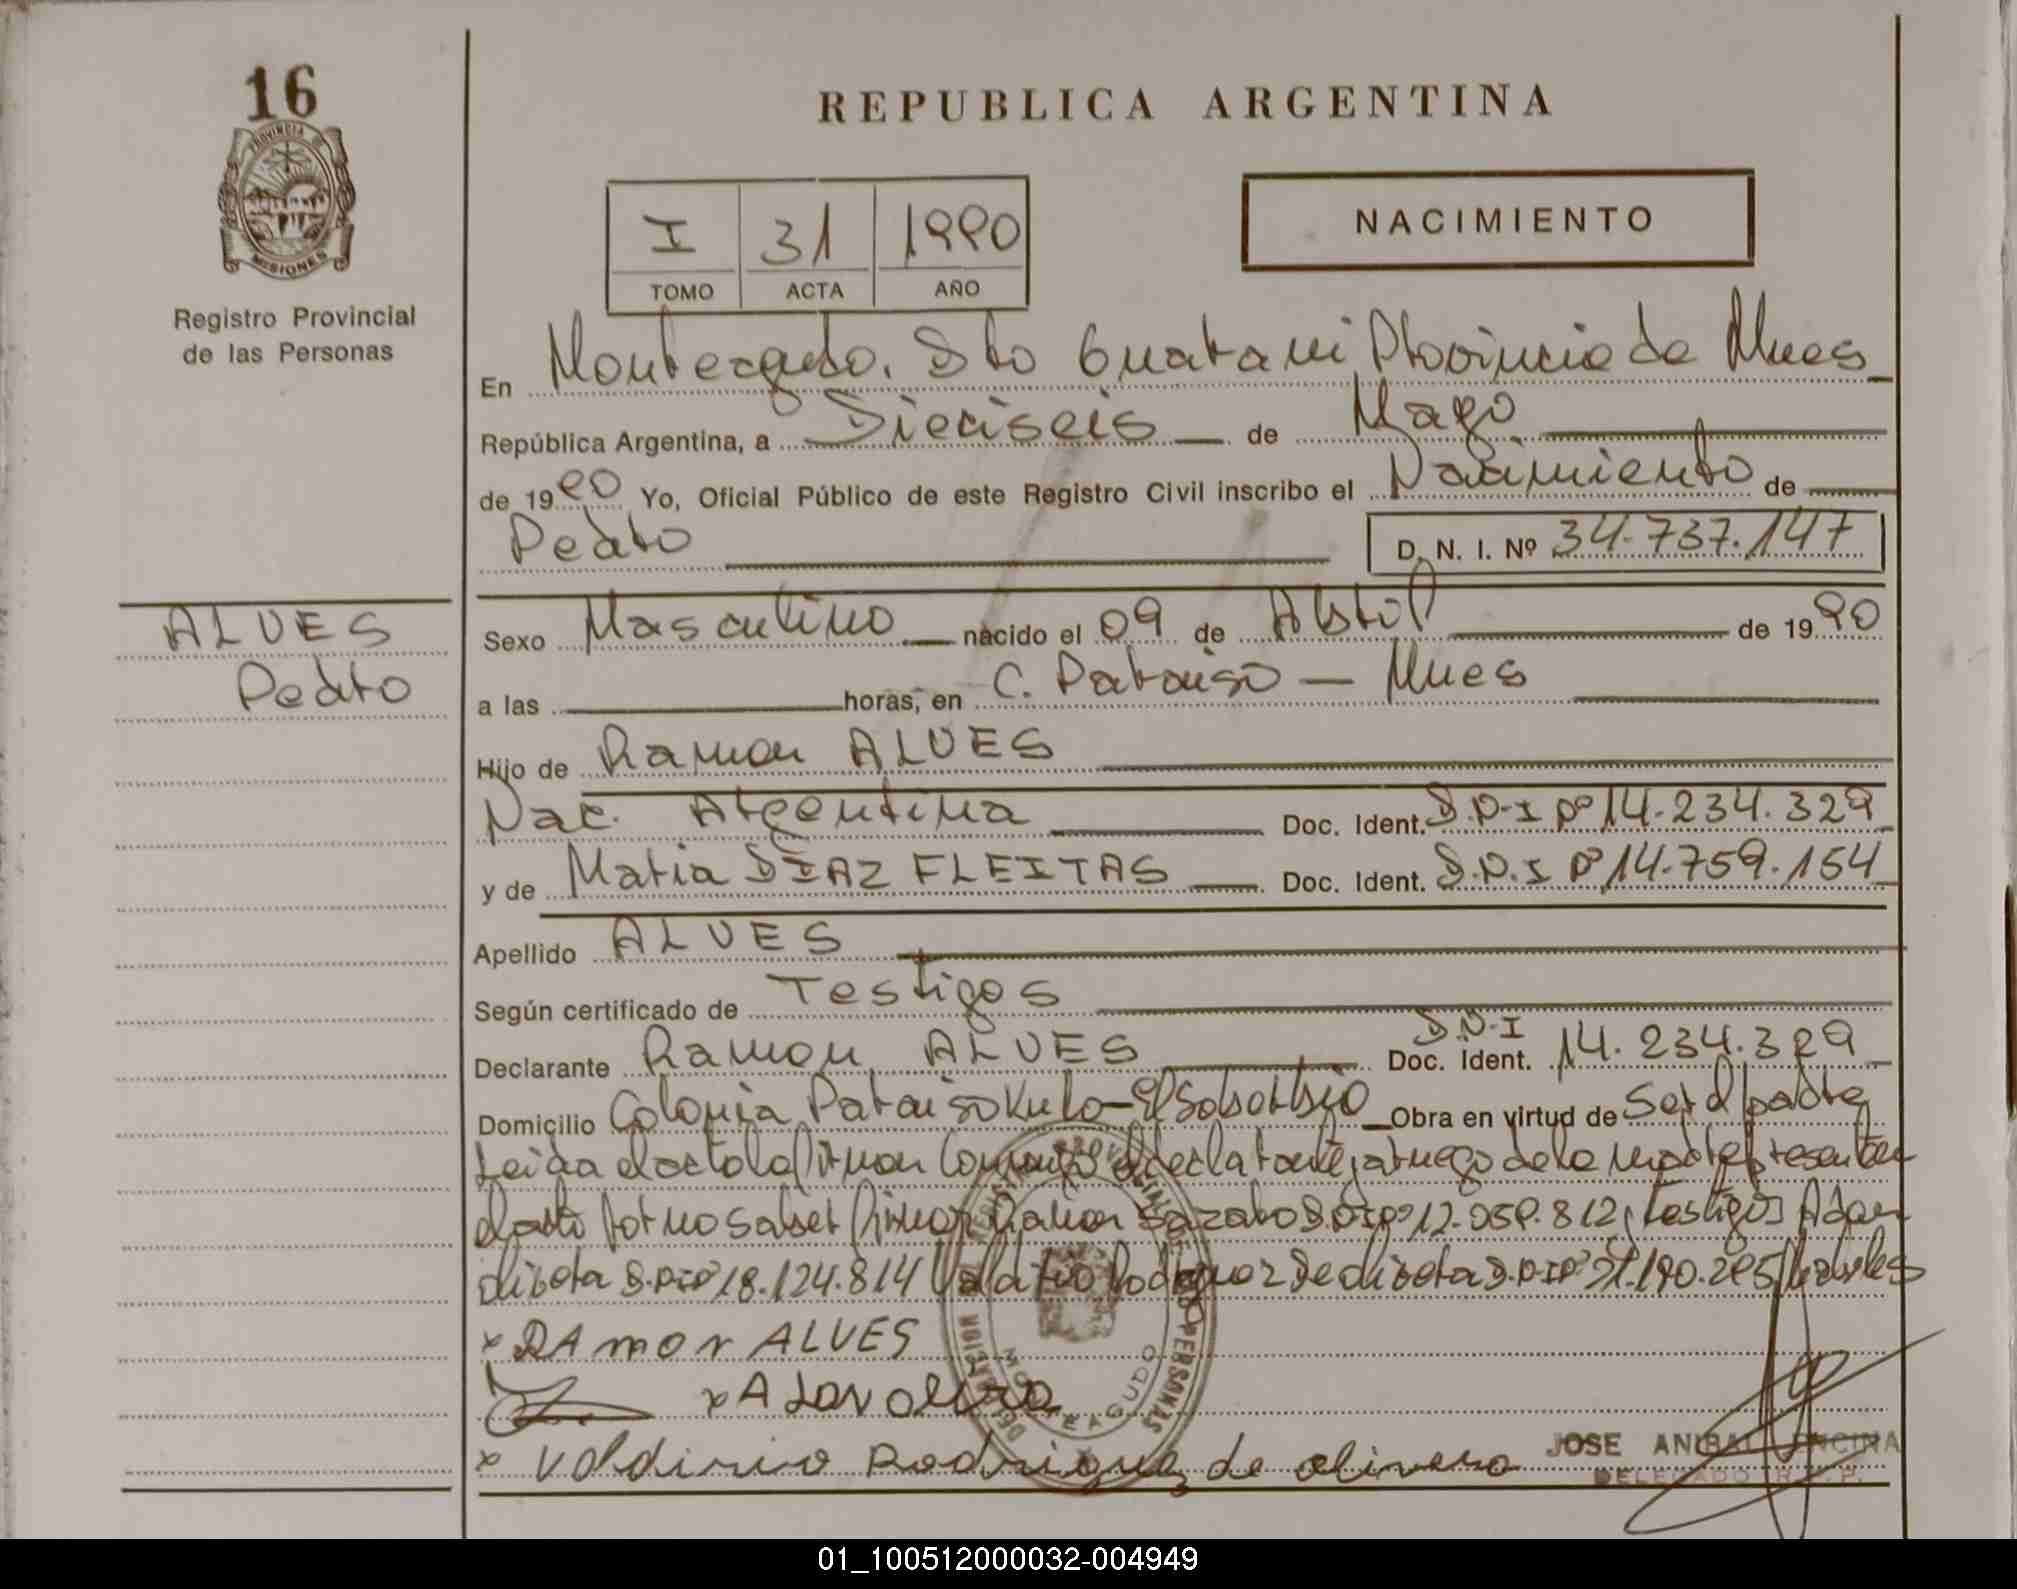 16
PROVINCIA DE
MISIONES
Registro Provincial
de las Personas
REPUBLICA ARGENTINA
I 31 1990
TOMO ACTA AÑO
NACIMIENTO
En Monteagudo. Dto Guarani Provincia de Mnes
República Argentina, a Dieciseis de Mayo
de 1990 Yo, Oficial Público de este Registro Civil inscribo el Nacimiento de
Pedro D. N. I. Nº 34.737.147
ALVES
Pedro
Sexo Masculino nacido el 09 de Abril de 1990
a las horas, en C. Paraiso - Mnes
Hijo de Ramon ALVES
Nac. Argentina Doc. Ident. D.N.I Nº 14.234.329
y de Maria DIAZ FLEITAS Doc. Ident. D.N.I Nº 14.759.154
Apellido ALVES
Según certificado de Testigos
Declarante Ramon ALVES D.N.I Doc. Ident. 14.234.329
Domicilio Colonia Paraiso Obra en virtud de Ser el padre
Leida el acta la firman Conmigo el declarante, a ruego de la madre presente en
el acto por no saber firmar Ramon D.N.I Nº 12. 812, testigos Adan
olivera D.N.I Nº 18.124.814 Rodriguez De olivera D.N.I Nº habiles
x RAmon ALVES
x ADan olivera
x Valdirio Rodriguez de olivera
JOSE ANIBAL ENCINA
DELEGADO R. P. P.
01_100512000032-004949